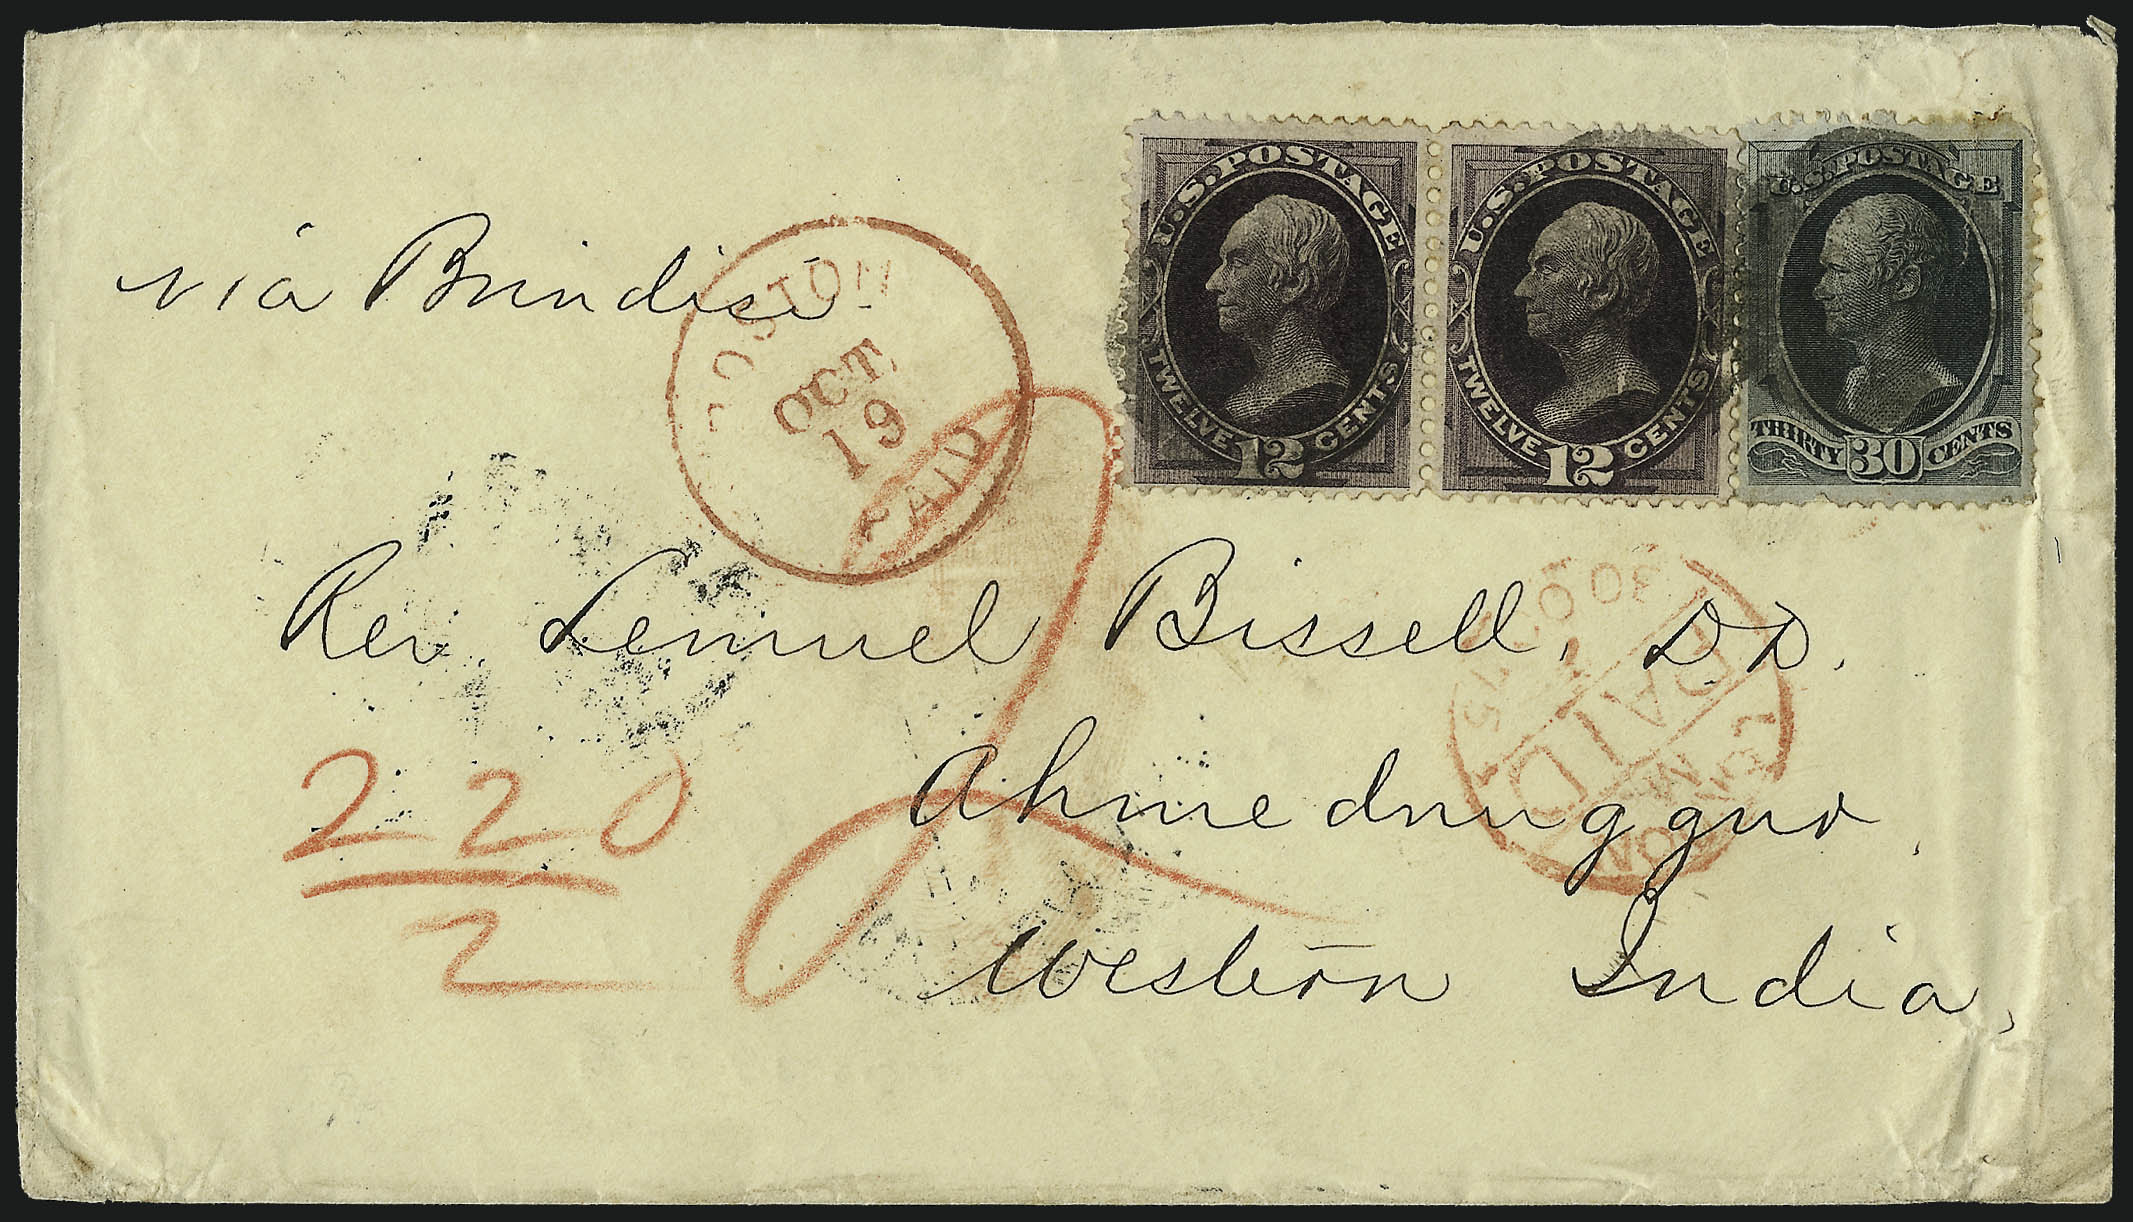 U.S. POSTAGE
TWELVE 12 CENTS
U.S. POSTAGE
TWELVE 12 CENTS
U.S. POSTAGE
THIRTY 30 CENTS
via Brindisi
BOSTON
OCT.
19
PAID
Rev Lemuel Bissell, D D.
Ahmednuggur,
Western India,
LONDON
PAID
30 OC 75
220
2
2